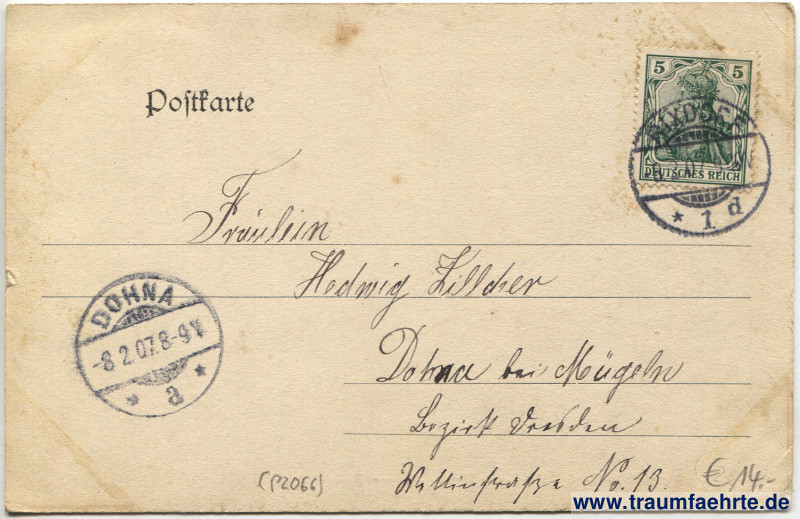 Postkarte
5 5
RIXDORF
07
DEUTSCHES REICH
* 1 d
Fräulein
Hedwig Zillcher
DOHNA
-8.2.07.8-9V.
* a *
Dohna bei Mügeln
Bezirk Dresden
Wettinstraße No. 13.
(P2066)
€ 14.-
www.traumfaehrte.de